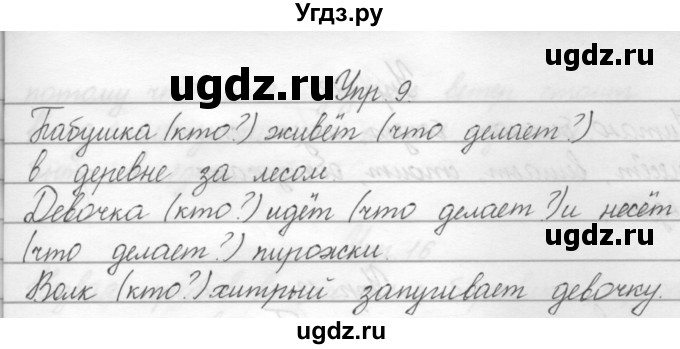 Угдз.ру
ugdz.ru ugdz.ru
Упр 9
Бабушка (кто?) живёт (что делает?)
в деревне за лесом.
Девочка (кто?) идёт (что делает?) и несёт
(что делает?) пирожки.
Волк (кто?) хитрый запугивает девочку.
ugdz.ru ugdz.ru
ugdz.ru